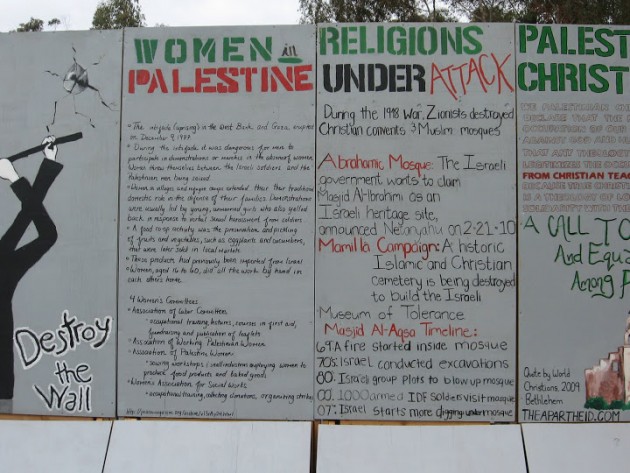 Destroy
the
Wall
WOMEN in
PALESTINE
• The intifada (uprising) in the West Bank and Gaza, erupted
on December 9, 1987
• During the intifada it was dangerous for men to
participate in demonstrations or marches in the absence of women.
Women threw themselves between the Israeli soldiers and the
Palestinian men being seized
• Women in villages and refugee camps extended their
domestic role in the defense of their families. Demonstrations
were usually led by young, unmarried girls who also yelled
back in response to verbal sexual harassment from soldiers
• A food co-op activity was the preservation and pickling
of fruits and vegetables, such as eggplants and cucumbers,
that were later sold in local markets
• These products had previously been imported from Israel
• Women, aged 16 to 60, did all the work by hand in
each others home.
4 Women's Committees
• Association of Labor Committee
• occupational training, lectures, courses in first aid,
fundraising and publication of
• Association of Working Palestinian Women
• Association of Palestine Women
• sewing workshops & small industries employing women to
produce food products and baked goods
• Women's Association for Social Work
• occupational training, collecting donations, organizing strikes
RELIGIONS
UNDER ATTACK
During the 1948 War, Zionists destroyed
Christian convents & Muslim mosques
Abrahamic Mosque: The Israeli
government wants to claim
Masjid Al-Ibrahmi as an
Israeli heritage site,
announced Netanyahu on 2-21-10
Mamilla Campaign: A historic
Islamic and Christian
cemetery is being destroyed
to build the Israeli
Museum of Tolerance
Masjid Al-Aqsa Timeline:
69: A fire started inside mosque
70s: Israel conducted excavations
80: Israeli group plots to blow up mosque
00: 1000 armed IDF soldiers visit mosque
07: Israel starts more digging under mosque
PALEST
CHRIST
WE PALESTINIAN CHR
DECLARE THAT THE
OCCUPATION OF OUR
AGAINST GOD AND
THAT ANY THEOLOGY
LEGITIMIZES THE OCCU
FROM CHRISTIAN TEAC
BECAUSE TRUE CHRIST
IS A THEOLOGY OF LO
SOLIDARITY WITH THE
A CALL TO
And Equa
Among P
Quote by World
Christians, 2009
Bethlehem
THEAPARTHEID.COM